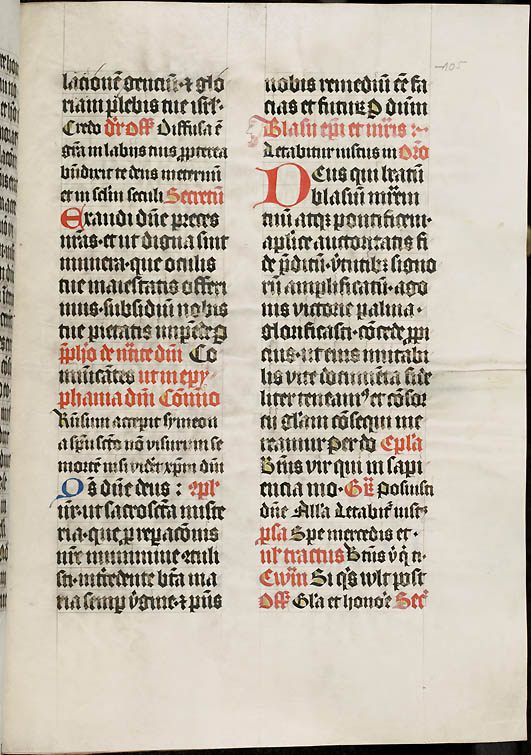 lationē gentiū· ⁊ glo
riam plebis tue isrl·
Credo Offr̄ Diffusa ē
gr̄a in labiis tuis ꝓpterea
bn̄dixit te deus in eternū
et in sclm̄ seculi Secretū
Exaudi dn̄e preces
nr̄as· et ut digna sint
munera· que oculis
tue maiestatis offeri
mus· subsidiū nobis
tue pietatis impēde ꝑ
p̄ph̄o de nr̄iте dn̄i Co
mūicātes ut in epy
phania dn̄i Cōmūo
Rn̄sum accepit symeon
a spū scō nō visurum se
mortē nisi videret xp̄m dn̄i
Qs̄ dn̄e deus
nr̄· ut sacroscā miste
ria· que ꝓ reꝑacōnis
nr̄e munimine ꝯtuli
sti· int̄cedente bt̄a ma
ria semꝑ v̄gine· ⁊ pn̄s
105
nobis remediū eē fa
cias et futurū ꝑ dnm̄
Blasii ep̄i et mr̄is
Letabitur iustus in Oro
Deus qui beatū
blasiū mr̄em
tuū atqꝫ pontificem·
aplice auctoritatis fi
de p̄ditū· v̄tutibꝫ signo
rū amplificatū· ago
nis victorie palma·
glorificasti· cōcede ꝓpi
cius· ut eius imitabi
lis vite documēta fide
liter teneamꝰ et cōsor
tiū gl̄am cōsequi me
reamur Per do Ep̄la
Bt̄us vir qui in sapi
encia mo· Gr̄ Posuisti
dn̄e All̄a Letabit̄ iust⁹
p̄sa Spe mercedis et·
ul̄ tractus Bt̄us v̄ q̄ ti·
Ewm̄ Si q̄s vult post
Off̄ Gl̄a et honore Sec̄